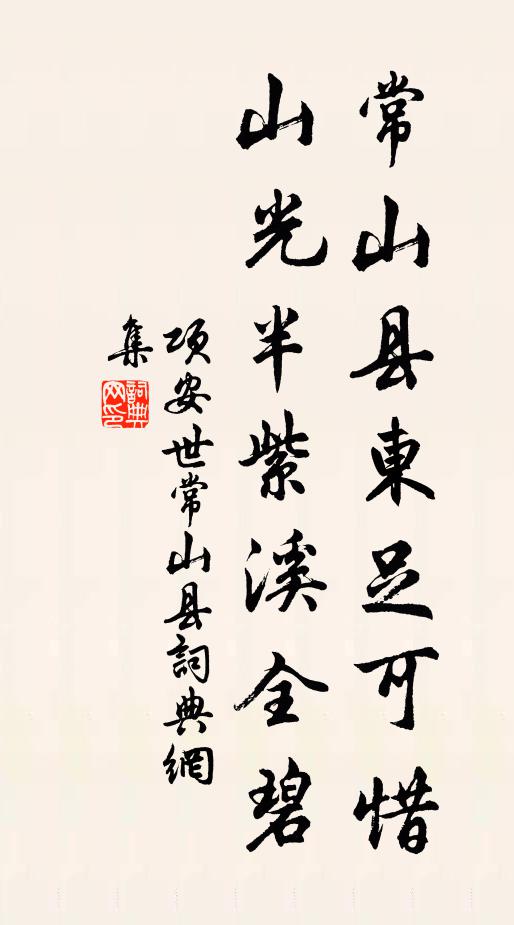 常山县東足可惜
山光半紫溪全碧
项安世常山县詞典網
集
詞典
网印